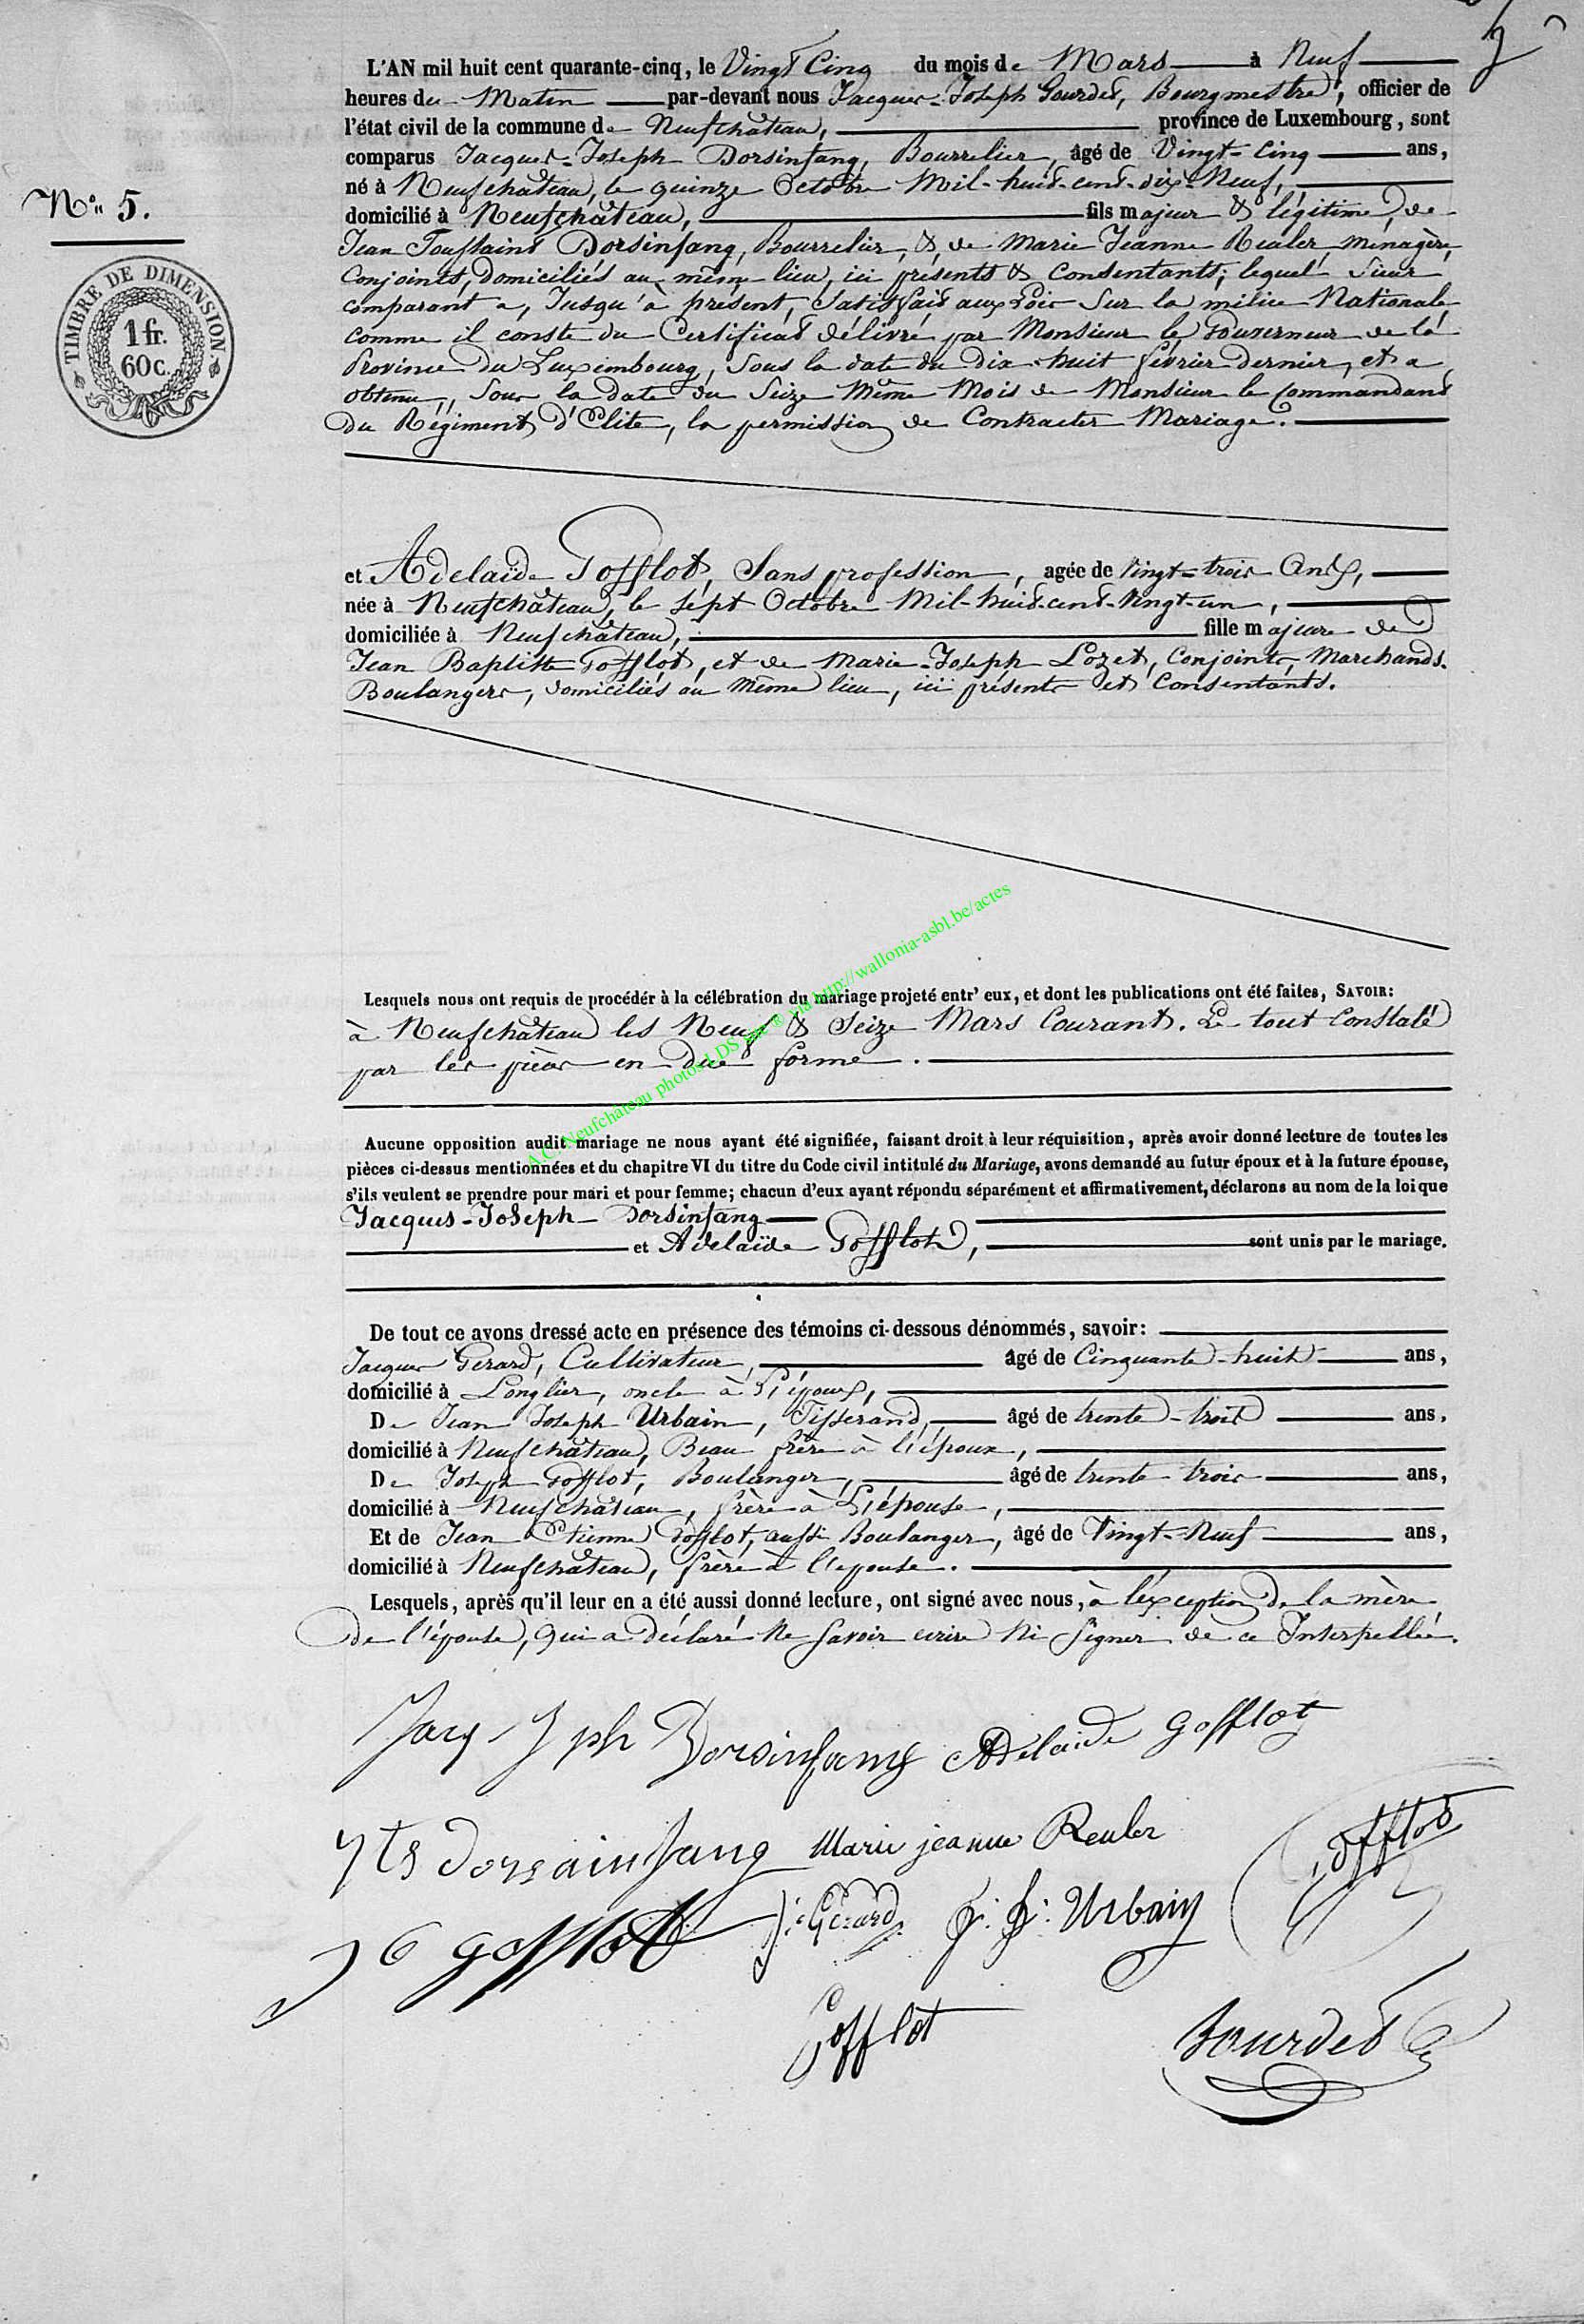 L'AN mil huit cent quarante-cinq, le Vingt Cinq du mois de Mars à Neuf
heures du Matin par-devant nous Jacques-Joseph Gourdet, Bourgmestre, officier de
l'état civil de la commune de Neufchâteau, province de Luxembourg, sont
comparus Jacques-Joseph Dorsinfang, Bourrelier, âgé de Vingt-Cinq ans,
né à Neufchâteau, le quinze Octobre Mil-huit-cent-dix-Neuf,
N° 5.
domicilié à Neufchâteau, fils majeur & légitime de
Jean Toussaint Dorsinfang, Bourrelier, & de Marie Jeanne Realer, ménagère,
Conjoints, domiciliés au même lieu, ici présents & Consentants; lequel Sieur
comparant a, Jusqu'à présent, Satisfait aux Lois Sur la milice Nationale
comme il conste du Certificat délivré par Monsieur le Gouverneur de la
Province du Luxembourg, Sous la date du Dix-huit février dernier, et a
obtenu, Sous la date du Seize Même Mois de Monsieur le Commandant
Du Régiment d'Elite, la permission de Contracter Mariage.
TIMBRE DE DIMENSION.
1 fr.
60 c.
et Adelaïde Gofflot, Sans profession, agée de Vingt-trois Ans,
née à Neufchâteau, le sept Octobre Mil-huit-cent-Vingt-un,
domiciliée à Neufchâteau, fille majeure de
Jean Baptiste Gofflot, et de Marie-Joseph Lozet, Conjoints, Marchands-
Boulangers, domiciliés au Même lieu, ici présents et Consentants.
Lesquels nous ont requis de procéder à la célébration du mariage projeté entr' eux, et dont les publications ont été faites, SAVOIR:
à Neufchâteau les Neuf & Seize Mars Courant. Le tout Constaté
par les pièces en Due forme.
A.C. Neufchâteau photos LDS via http://wallonia-asbl.be/actes
Aucune opposition audit mariage ne nous ayant été signifiée, faisant droit à leur réquisition, après avoir donné lecture de toutes les
pièces ci-dessus mentionnées et du chapitre VI du titre du Code civil intitulé du Mariage, avons demandé au futur époux et à la future épouse,
s'ils veulent se prendre pour mari et pour femme; chacun d'eux ayant répondu séparément et affirmativement, déclarons au nom de la loi que
Jacques-Joseph Dorsinfang
et Adelaïde Gofflot, sont unis par le mariage.
De tout ce avons dressé acte en présence des témoins ci-dessous dénommés, savoir:
Jacques Gerard, Cultivateur, âgé de Cinquante-huit ans,
domicilié à Longlier, oncle à l'époux,
De Jean Joseph Urbain, Tisserand, âgé de trente-trois ans,
domicilié à Neufchâteau, Beau frère à l'époux,
De Joseph Gofflot, Boulanger, âgé de trente trois ans,
domicilié à Neufchâteau, frère à l'épouse,
Et de Jean Etienne Gofflot, aussi Boulanger, âgé de Vingt-Neuf ans,
domicilié à Neufchâteau, frère à l'épouse.
Lesquels, après qu'il leur en a été aussi donné lecture, ont signé avec nous, à l'exception de la mère
de l'épouse, qui a déclaré Ne Savoir écrire Ni Signer de ce Interpellée.
Jacq Jph Dorsinfang Adelaide gofflot
Jts Dorsainfang Marie jeanne Reuler Gofflot
J B gofflot J: Gérard J: J: Urbain
Gofflot Gourdet